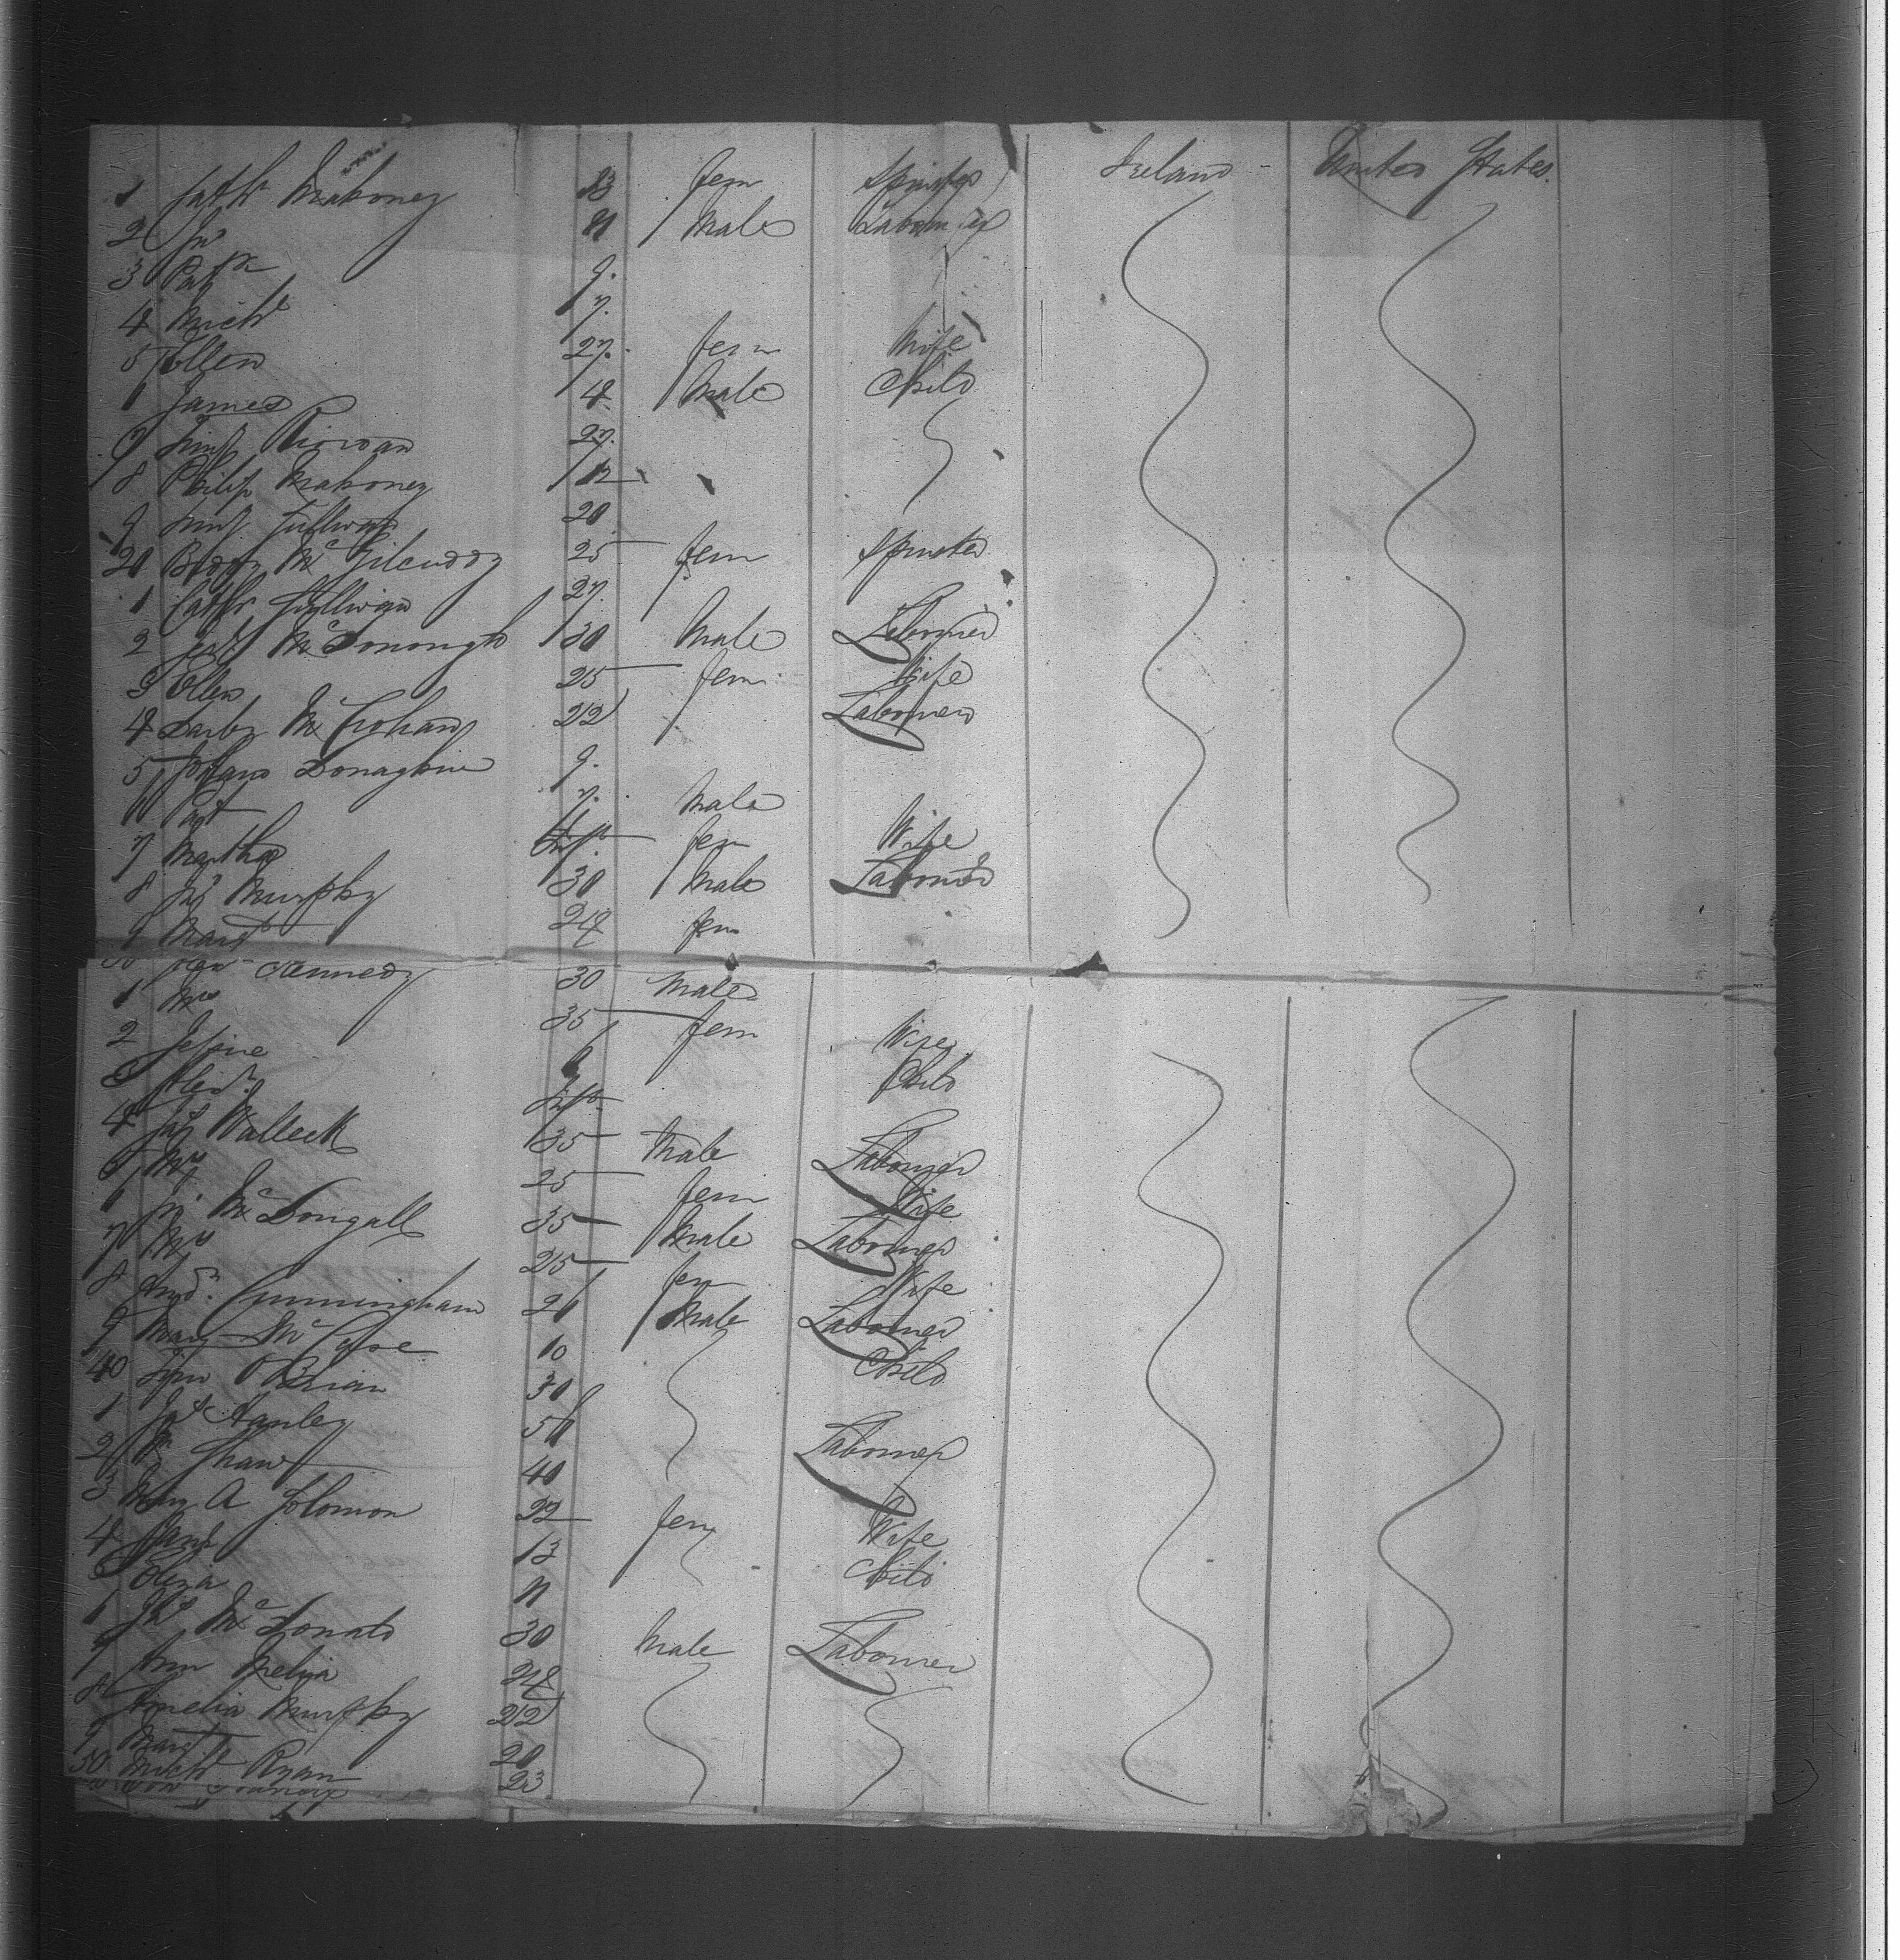 1 Cath Mahoney 13 fem Spinster Ireland United States
2 Jno 11 Male Labourer
3 Patk 9
4 Michl 7
5 Ellen 27 fem Wife
James 4 Male Child
7 Timy Riordan 27
8 Philip Mahoney 12
9 Timy Sullivan 20
20 Biddy McGilcuddy 25 fem Spinster
1 Cathr Sullivan 27
2 McDonough 30 Male Labourer
3 Ellen 25 fem Wife
4 Darby McCrohan 22 Labourer
5 Donaghue 9
6 Pat 7 Male
7 Martha fem Wife
8 Jno Murphy 30 Male Labourer
9 Margt 24 fem
Kennedy 30 Male
1 Mrs 35 fem Wife
2 Child
3 Alexr
4 Jas 35 Male Labourer
5 Mrs 25 fem Wife
6 Jno McDougall 35 Male Labourer
7 Mrs 25 fem Wife
8 Andw Cunningham 21 Male Labourer
9 Mary 10 Child
40 O'Brian 30
1 Jas Hanley 50 Labourer
2 Shaw 40
3 Mary A Solomon 22 fem Wife
4 13 Child
5 Eliza 11
6 McDonald 30 Male Labourer
7 Ann Melia 24
8 Amelia Murphy 22
9 Margt 20
50 Michl Ryan 23